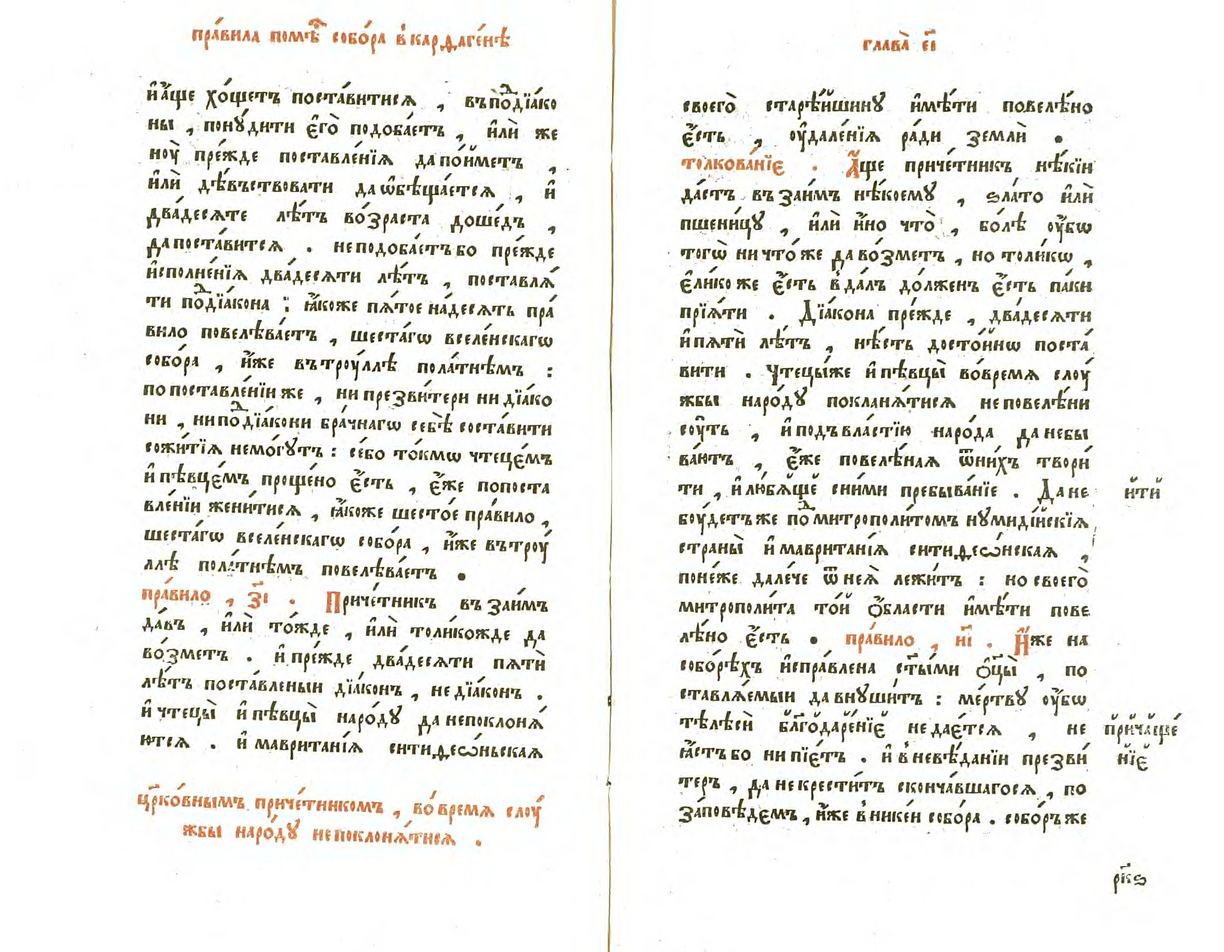 пра́вила помѣ́ⷭ҇ собо́ра в̾кардаге́нѣ
и҆а҆́ще хо́щетъ поста́витисѧ , въпоⷣдїа́ко
ны , пону́дити є҆го̀ подоба́етъ , и҆лѝ же
ноу̀ пре́жде поставле́нїѧ дапо́иметъ ,
и҆лѝ дѣ́въствовати даѡ҆бѣща́етсѧ , и҆
два́десѧте лѣ́тъ во́зраста доше́дъ ,
дапоста́витсѧ . неподоба́етъбо пре́жде
и҆сполне́нїѧ два́десѧти лѣ́тъ , поставлѧ́
ти поⷣдїа́кона : ꙗ҆́коже пѧ́тоена́десѧть пра́
вило повелѣва́етъ , шеста́гѡ вселе́нскагѡ
собо́ра , и҆́же вътроу́ллѣ пола́тнѣмъ :
попоставле́нїиже , нипрезви́тери нидїа́ко
ни , нипоⷣдїа́кони бра́чнагѡ себѣ̀ соста́вити
сожи́тїѧ немо́гутъ : се́бо то́кмѡ чтеце́мъ
и҆пѣвце́мъ проще́но є҆́сть , є҆́же попоста
вле́нїи жени́тисѧ , ꙗ҆́коже шесто́е пра́вило ,
шеста́гѡ вселе́нскагѡ собо́ра , и҆́же вътроу́
ллѣ пола́тнѣмъ повелѣва́етъ .
пра́вило , з҃і . Приче́тникъ въ заи́мъ
да́въ , и҆лѝ то́жде , и҆лѝ толи́кожде да
во́зметъ . и҆пре́жде два́десѧти пѧтѝ
лѣ́тъ поста́вленыи дїа́конъ , недїа́конъ .
и҆чтецы̀ и҆пѣвцы̀ наро́ду данепоклонѧ́
ютсѧ . и҆маврита́нїѧ ситиѳесѡ́ньскаѧ
цр҃ко́внымъ приче́тникомъ , во́времѧ слоу́
жбы наро́ду непоклонѧ́тисѧ .
глава̀ є҃і
своего̀ старѣ́йшину и҆мѣ́ти повелѣ́но
є҆́сть , оу҆дале́нїѧ ра́ди землѝ .
толкова́нїе . А҆́ще приче́тникъ нѣ́кїи
да́стъ въ заи́мъ нѣ́коему , ѕла́то и҆лѝ
пшени́цу , и҆лѝ и҆́но что̀ , бо́лѣ оу҆́бѡ
тогѡ̀ ничто́же даво́зметъ , но толи́кѡ ,
є҆ли́коже є҆́сть в̾да́лъ до́лженъ є҆́сть па́ки
прїѧ́ти . Дїа́кона пре́жде , два́десѧти
и҆пѧтѝ лѣ́тъ , нѣ́сть досто́йнѡ поста́
вити . Чтецы́же и҆пѣвцы̀ во́времѧ слоу́
жбы наро́ду покланѧ́тисѧ неповелѣ́ни
соу́ть , и҆подъвла́стїю наро́да данебы
ва́ютъ , є҆́же повелѣ́наѧ ѿни́хъ твори́
ти , и҆лю́бѧще сни́ми пребыва́нїе . Дане
и҆тѝ
боу́детъже поⷣмитрополи́томъ нумиді́йскїѧ
страны̀ и҆маврита́нїѧ ситиѳесѡ́нскаѧ ,
поне́же дале́че ѿнеѧ̀ лежи́тъ : но своего̀
митрополи́та то́й о҆́бласти и҆мѣ́ти пове
лѣ́но є҆́сть . пра́вило , и҃і . И҆́же на
собо́рѣхъ и҆спра́влена ст҃ы́ми о҆ц҃ы̀ , по
ставлѧ́емыи давнуши́тъ : ме́ртву оу҆́бѡ
тѣлесѝ бл҃годаре́нїе недае́тсѧ , не
причаще́
нїе
ꙗ҆́стъбо нипїе́тъ . и҆в̾невѣ́дѣнїи презви́
теръ , данекрести́тъ сконча́вшагосѧ , по
за́повѣдемъ , и҆́же в̾нике́и собо́ра . собо́ръже
рк҃ѕ